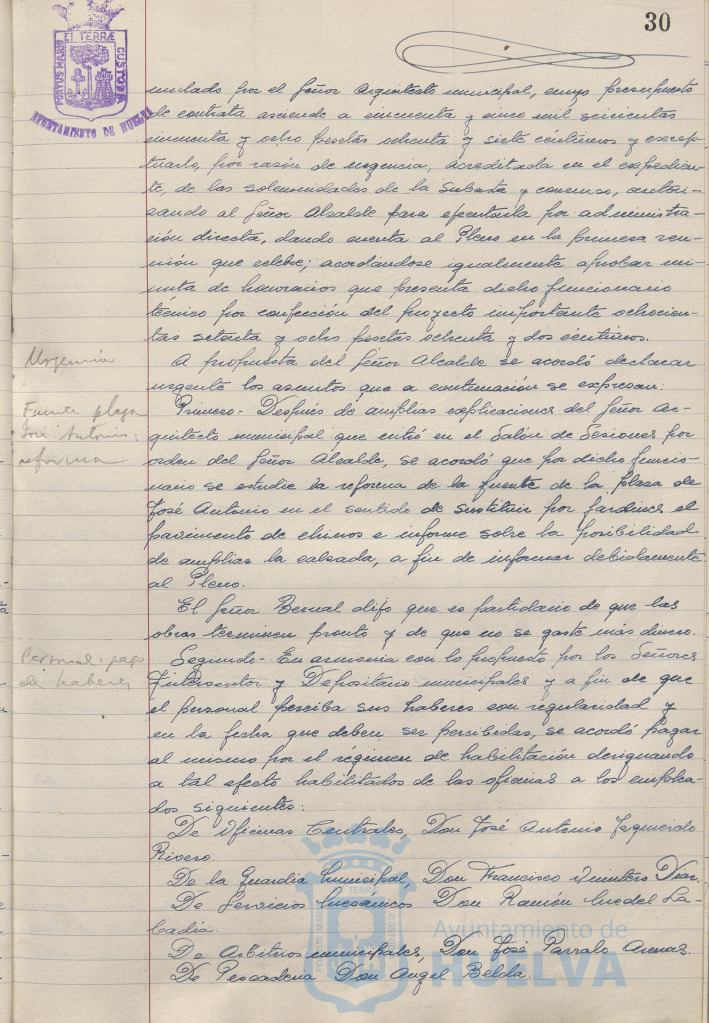 30
PORTUS MARIS ET TERRÆ CUSTODIA
AYUNTAMIENTO DE HUELVA
mulado por el Señor Arquitecto municipal, cuyo presupuesto
de contrata asciende a cincuenta y cinco mil seiscientas
cincuenta y ocho pesetas ochenta y siete céntimos y excep-
tuarlo, por razón de urgencia, acreditada en el expedien-
te, de las solemnidades de la subasta y concurso, autori-
zando al Señor Alcalde para ejecutarla por administra-
ción directa, dando cuenta al Pleno en la primera reu-
nión que celebre; acordándose igualmente aprobar mi-
nuta de honorarios que presenta dicho funcionario
técnico por confección del proyecto importante ochocien-
tas setenta y ocho pesetas ochenta y dos céntimos.
Urgencia
A propuesta del Señor Alcalde se acordó declarar
urgente los asuntos que a continuación se expresan:
Fuente plaza
José Antonio:
reforma
Primero- Después de amplias explicaciones del Señor Ar-
quitecto municipal que entró en el Salón de Sesiones por
orden del Señor Alcalde, se acordó que por dicho funcio-
nario se estudie la reforma de la fuente de la plaza de
José Antonio en el sentido de sustituir por jardines el
pavimento de chinos e informe sobre la posibilidad
de ampliar la calzada, a fin de informar debidamente
al Pleno.
El Señor Bernal dijo que es partidario de que las
obras terminen pronto y de que no se gaste más dinero.
Personal: pago
de haberes
Segundo- En armonía con lo propuesto por los Señores
Interventor y Depositario municipales y a fin de que
el personal perciba sus haberes con regularidad y
en la fecha que deben ser percibidas, se acordó pagar
al mismo por el régimen de habilitación designando
a tal efecto habilitados de las oficinas a los emplea-
dos siguientes:
De Oficinas Centrales, Don José Antonio Izquierdo
Rivero.
De la Guardia Municipal, Don Francisco Quintero Díaz.
De Servicios Mecánicos Don Ramón Muedel La-
badía.
De Arbitrios municipales, Don José Parralo Arenas.
De Pescadería Don Angel Belda.
Ayuntamiento de
HUELVA